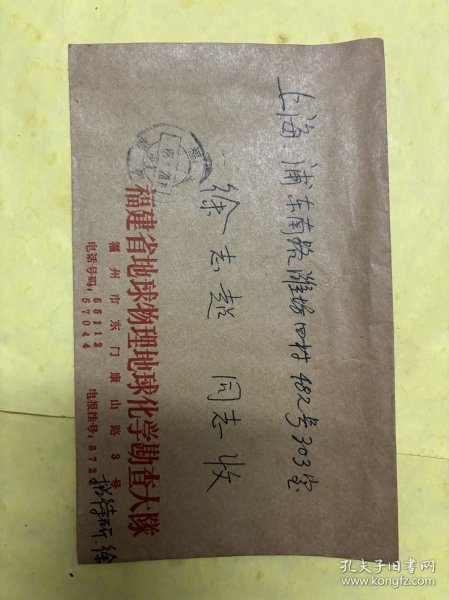 上海 浦东南路潍坊四村482号303室
徐志超 同志收
福建省地球物理地球化学勘查大队
福州市东门康山路8号
电话号码:66112
67044
电报挂号:872
招待所.徐
孔夫子旧书网
www.kongfz.com